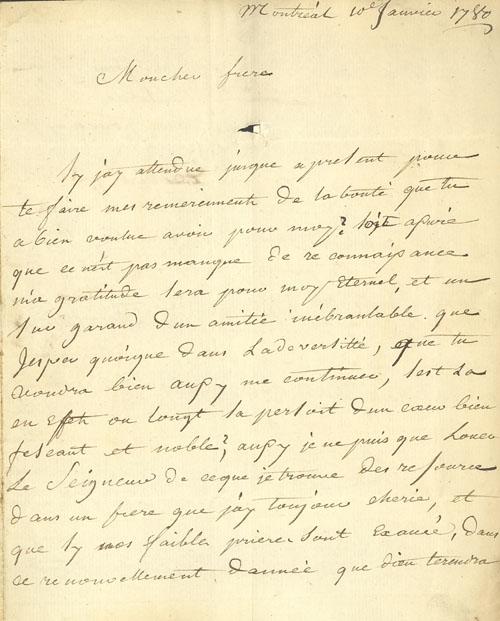 Montréal 10e Janvier 1780
Moncher frere
Sy jay attendue jusque apresent pour
te faire mes remerciments de la bonté que tu
a bien voulue avoir pour moy? soit assuré
que ce n'est pas manque de reconnaisance
ma gratitude sera pour moy Eternel, et un
sur garand d'un amitié inébranlable que
Jesper quoique dans Ladversitté, que tu
voudra bien aussy me continuer, sest La
en efet ou longt sa persoit d'un coeur bien
fesant et noble? aussy je ne puis que Louer
Le Seigneur de ceque je trouve des resource
dans un frere que j'ay toujour cherie, et
que sy mes faible priere sont Exaucé, dans
ce renouvellement d'année que dieu te rendra